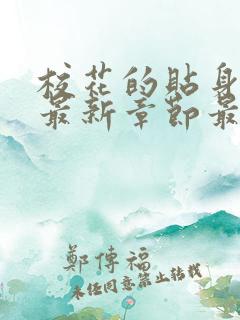 校花的貼身
最新章節最
鄭傳福
未經同意禁止轉載